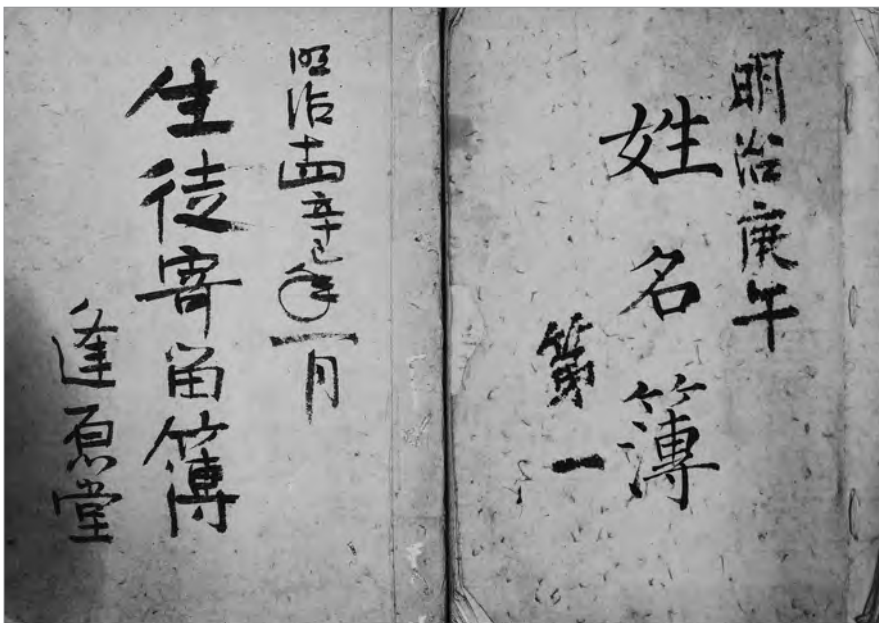 明治庚午
姓名簿
第一
明治十四辛巳年一月
生徒寄留簿
逢原堂